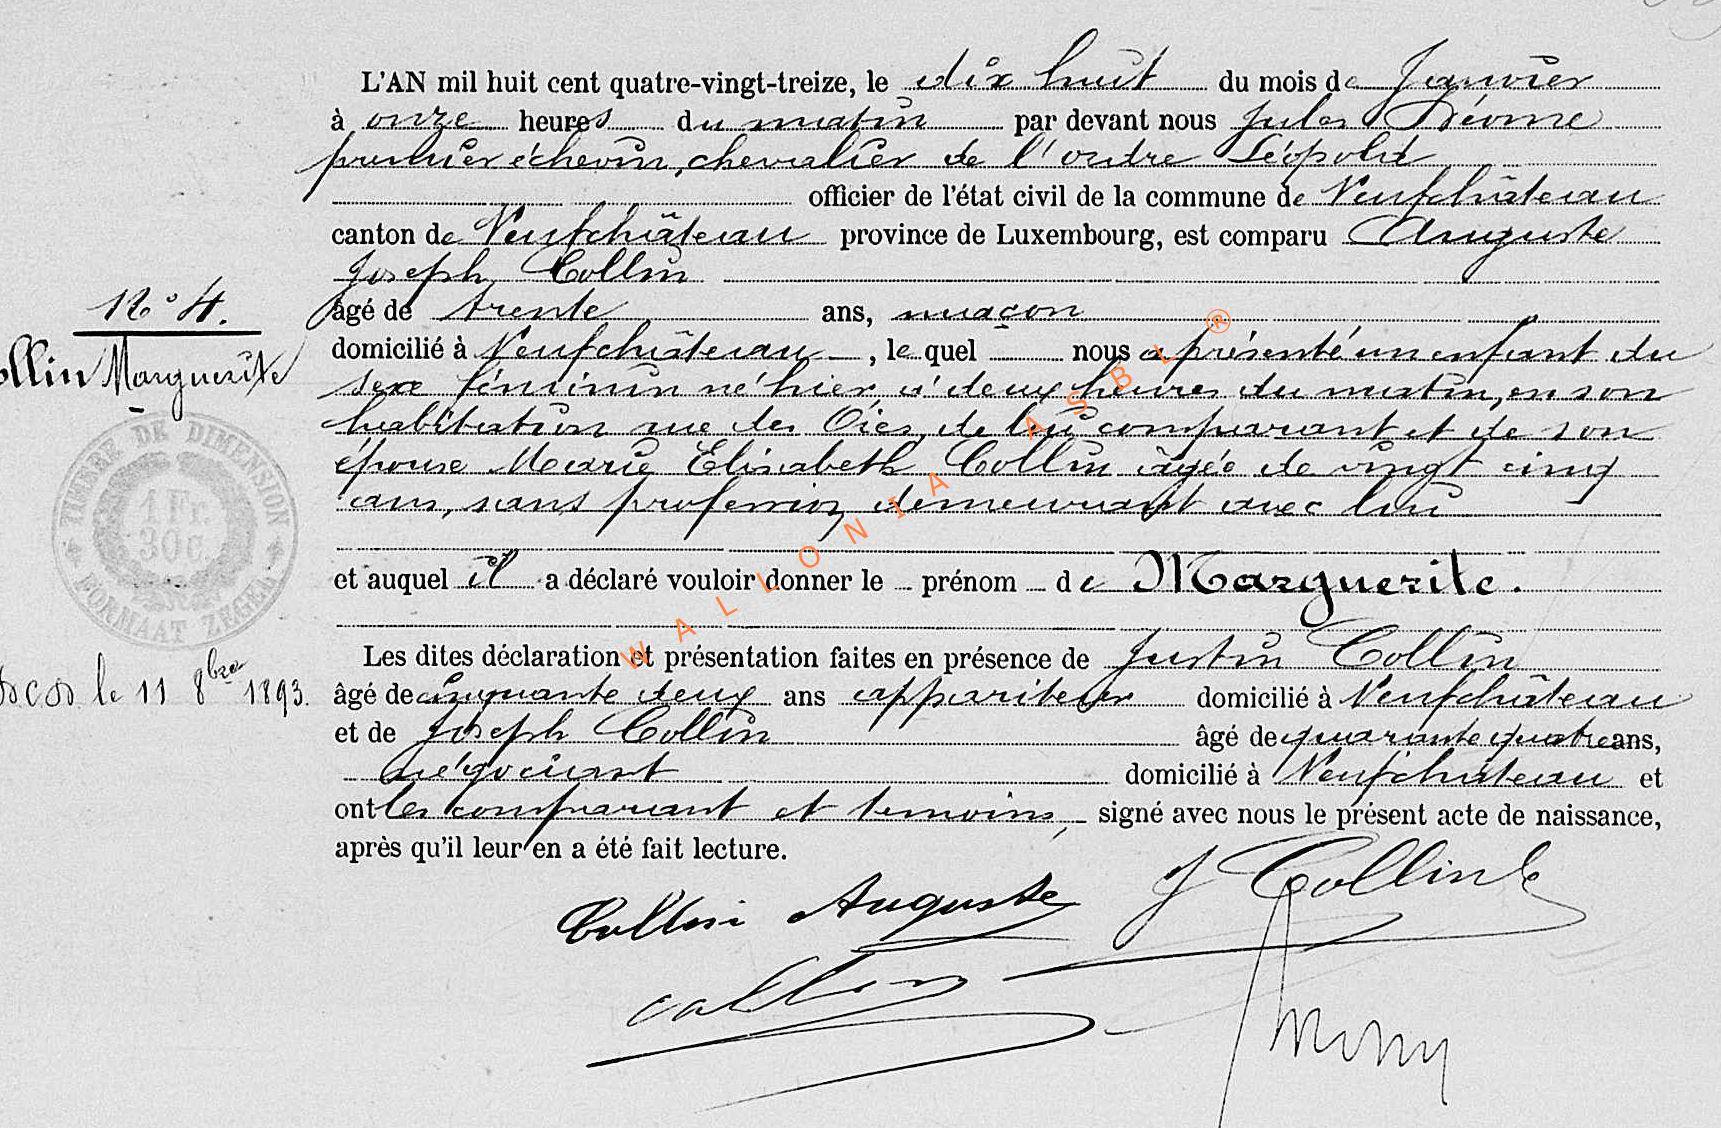 L'AN mil huit cent quatre-vingt-treize, le dix huit du mois de Janvier
à onze heures du matin par devant nous Jules
premier échevin, chevalier de l'ordre Léopold
officier de l'état civil de la commune de Neufchâteau
canton de Neufchâteau province de Luxembourg, est comparu Auguste
Joseph Collin
N° 4.
âgé de trente ans, maçon
domicilié à Neufchâteau, lequel nous a présenté un enfant du
ollin Marguerite
sexe féminin né hier, à deux heures du matin, en son
habitation rue des Oies, de lui comparant et de son
épouse Marie Elisabeth Collin âgée de vingt cinq
ans, sans profession demeurant avec lui
TIMBRE DE DIMENSION
1 Fr.
30 c.
FORMAAT ZEGEL
et auquel il a déclaré vouloir donner le prénom de Marguerite.
Les dites déclaration et présentation faites en présence de Justin Collin
âgé de cinquante deux ans appariteur domicilié à Neufchâteau
le 11 8bre 1893.
et de Joseph Collin âgé de quarante quatre ans,
négociant domicilié à Neufchâteau et
ont les comparant et temoins, signé avec nous le présent acte de naissance,
après qu'il leur en a été fait lecture.
Collin Auguste J Collin
Collin
WALLONIA ASBL ®